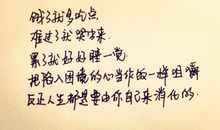 饿了就多吃点
难过了就哭出来
累了就好好睡一觉
把陷入困境的心当作饭一样咀嚼
反正人生都是要由你自己来消化的.